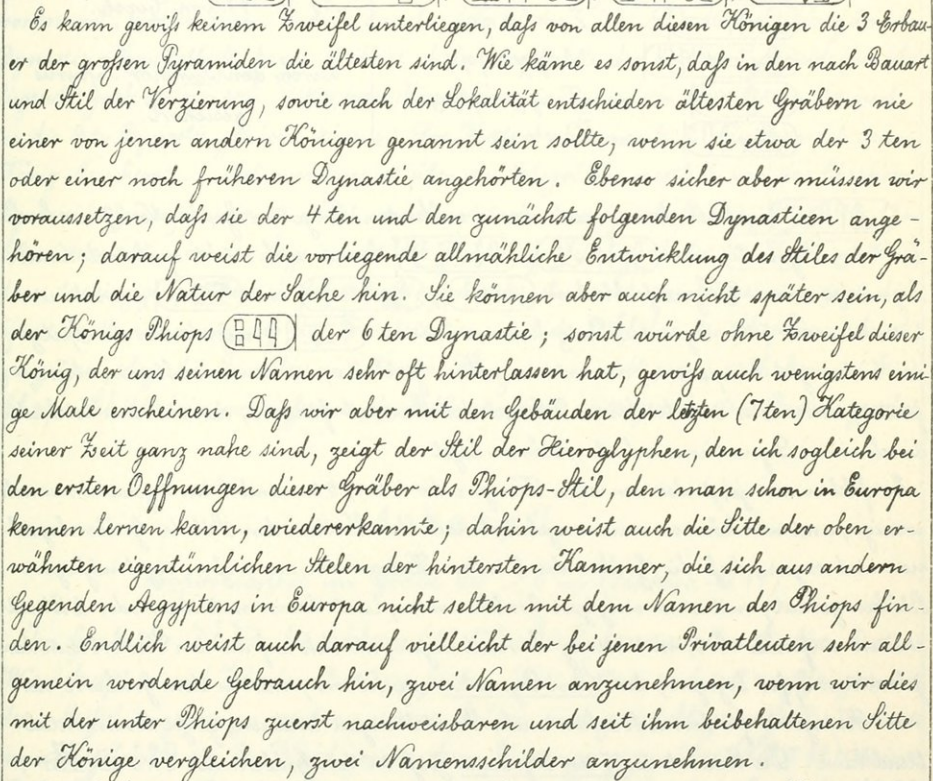 Es kann gewiſs keinem Zweifel unterliegen, daſs von allen diesen Königen die 3 Erbau-
er der groſsen Pyramiden die ältesten sind. Wie käme es sonst, daſs in den nach Bauart
und Stil der Verzierung, sowie nach der Lokalität entschieden ältesten Gräbern nie
einer von jenen andern Königen genannt sein sollte, wenn sie etwa der 3 ten
oder einer noch früheren Dynastie angehörten. Ebenso sicher aber müssen wir
voraussetzen, daſs sie der 4 ten und den zunächst folgenden Dynastieen ange-
hören; darauf weist die vorliegende allmähliche Entwicklung des Stiles der Grä-
ber und die Natur der Sache hin. Sie können aber auch nicht später sein, als
der Königs Phiops 𓊪𓊪𓇋𓇋 der 6 ten Dynastie; sonst würde ohne Zweifel dieser
König, der uns seinen Namen sehr oft hinterlassen hat, gewiſs auch wenigstens eini-
ge Male erscheinen. Daſs wir aber mit den Gebäuden der letzten (7 ten) Kategorie
seiner Zeit ganz nahe sind, zeigt der Stil der Hieroglyphen, den ich sogleich bei
den ersten Oeffnungen dieser Gräber als Phiops-Stil, den man schon in Europa
kennen lernen kann, wiedererkannte; dahin weist auch die Sitte der oben er-
wähnten eigentümlichen Stelen der hintersten Kammer, die sich aus andern
Gegenden Aegyptens in Europa nicht selten mit dem Namen des Phiops fin-
den. Endlich weist auch darauf vielleicht der bei jenen Privatleuten sehr all-
gemein werdende Gebrauch hin, zwei Namen anzunehmen, wenn wir dies
mit der unter Phiops zuerst nachweisbaren und seit ihm beibehaltenen Sitte
der Könige vergleichen, zwei Namensschilder anzunehmen.